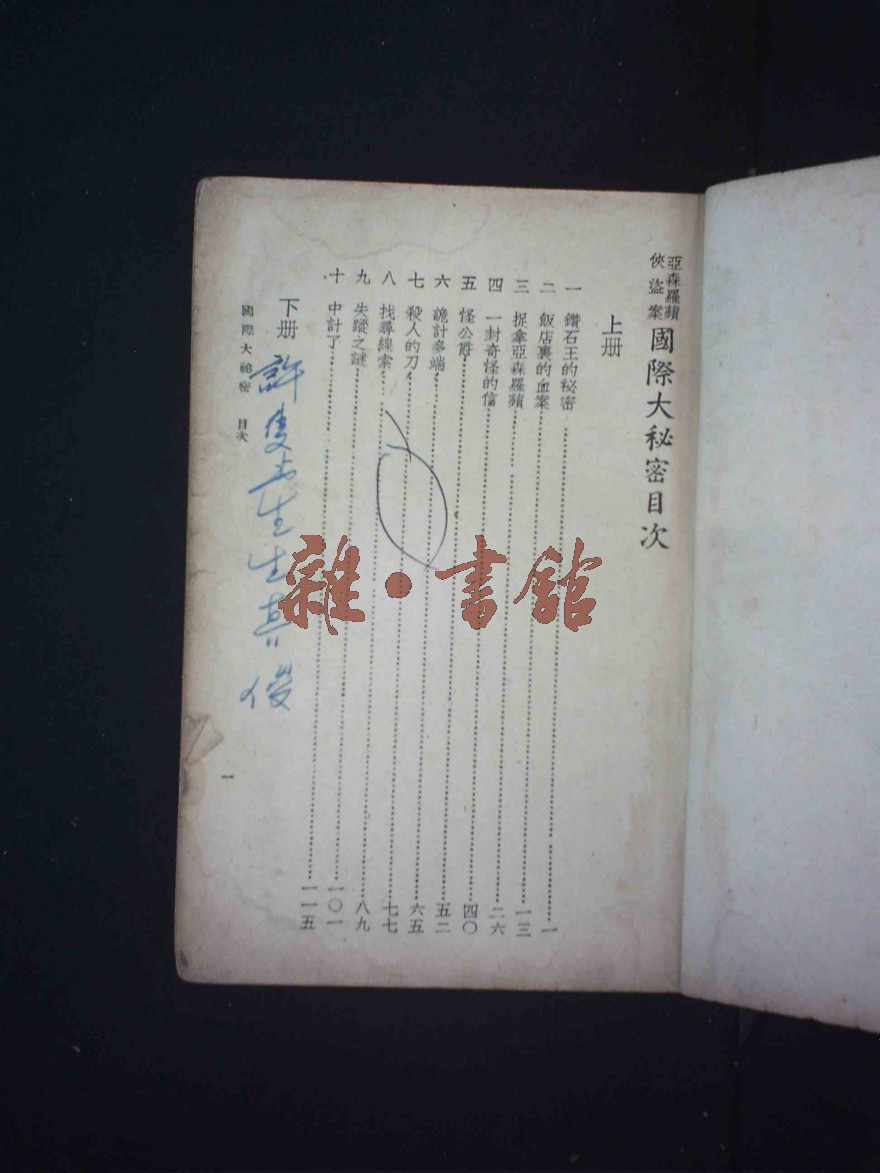 亞森羅蘋
俠盜案
國際大秘密目次
上册
一 鑽石王的秘密 一
二 飯店裏的血案 一三
三 捉拿亞森羅蘋 二六
四 一封奇怪的信 四〇
五 怪公爵 五二
六 詭計多端 六五
七 殺人的刀 七七
八 找尋線索 八九
九 失蹤之謎 一〇一
十 中計了 一一五
下册
國際大祕密 目次
一
許
生生
雜·書館